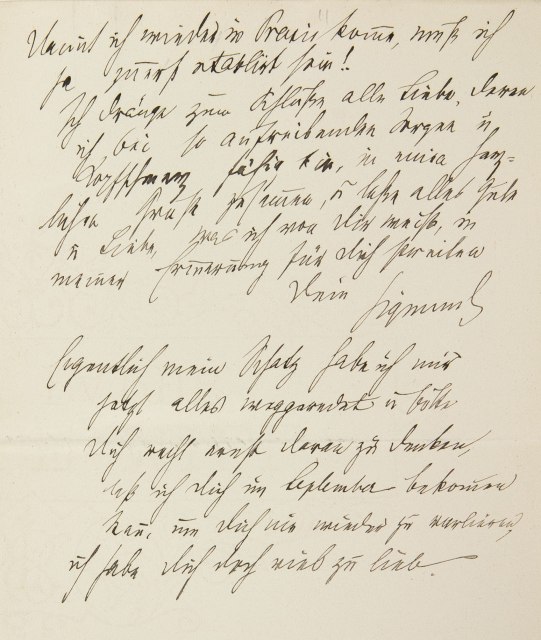 Damit ich wieder in Praxis komme, muß ich
ja zuerst etablirt sein!
Ich dränge zum Schluße alle Liebe, deren
ich bei so aufreibenden Sorgen u
Kopfschmerz fähig bin, in einen herz-
lichen Gruß zusammen, u laße alles Gute
u Liebe, was ich von Dir weiß, in
meiner Erinnerung für Dich sprechen
Dein Sigmund
Eigentlich mein Schatz habe ich mir
jetzt alles weggeredet u bitte
Dich recht ernst daran zu denken,
daß ich Dich im September bekommen
kann, um Dich nie wieder zu verlieren,
ich habe Dich doch viel zu lieb.